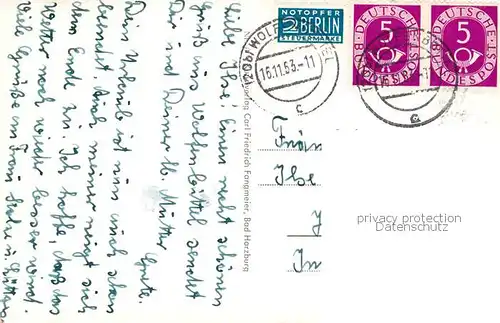 Liebe Ilse! Einen recht schönen
Gruß aus Wolfenbüttel sendet
Dir und Deiner lb. Mutter Grete.
Dein Urlaub ist nun auch schon
beendet. Auch meiner neigt sich
dem Ende zu. Ich hoffe, daß das
Wetter noch wieder besser wird.
Viele Grüße an Frau
NOTOPFER
2 BERLIN
STEUERMARKE
DEUTSCHE BUNDESPOST
5
DEUTSCHE BUNDESPOST
5
(20b) WOLFENBÜTTEL
16.11.53.-11
c
Carl Friedrich Fangmeier, Bad Harzburg
Fräu
Ilse
J
In
privacy protection
Datenschutz